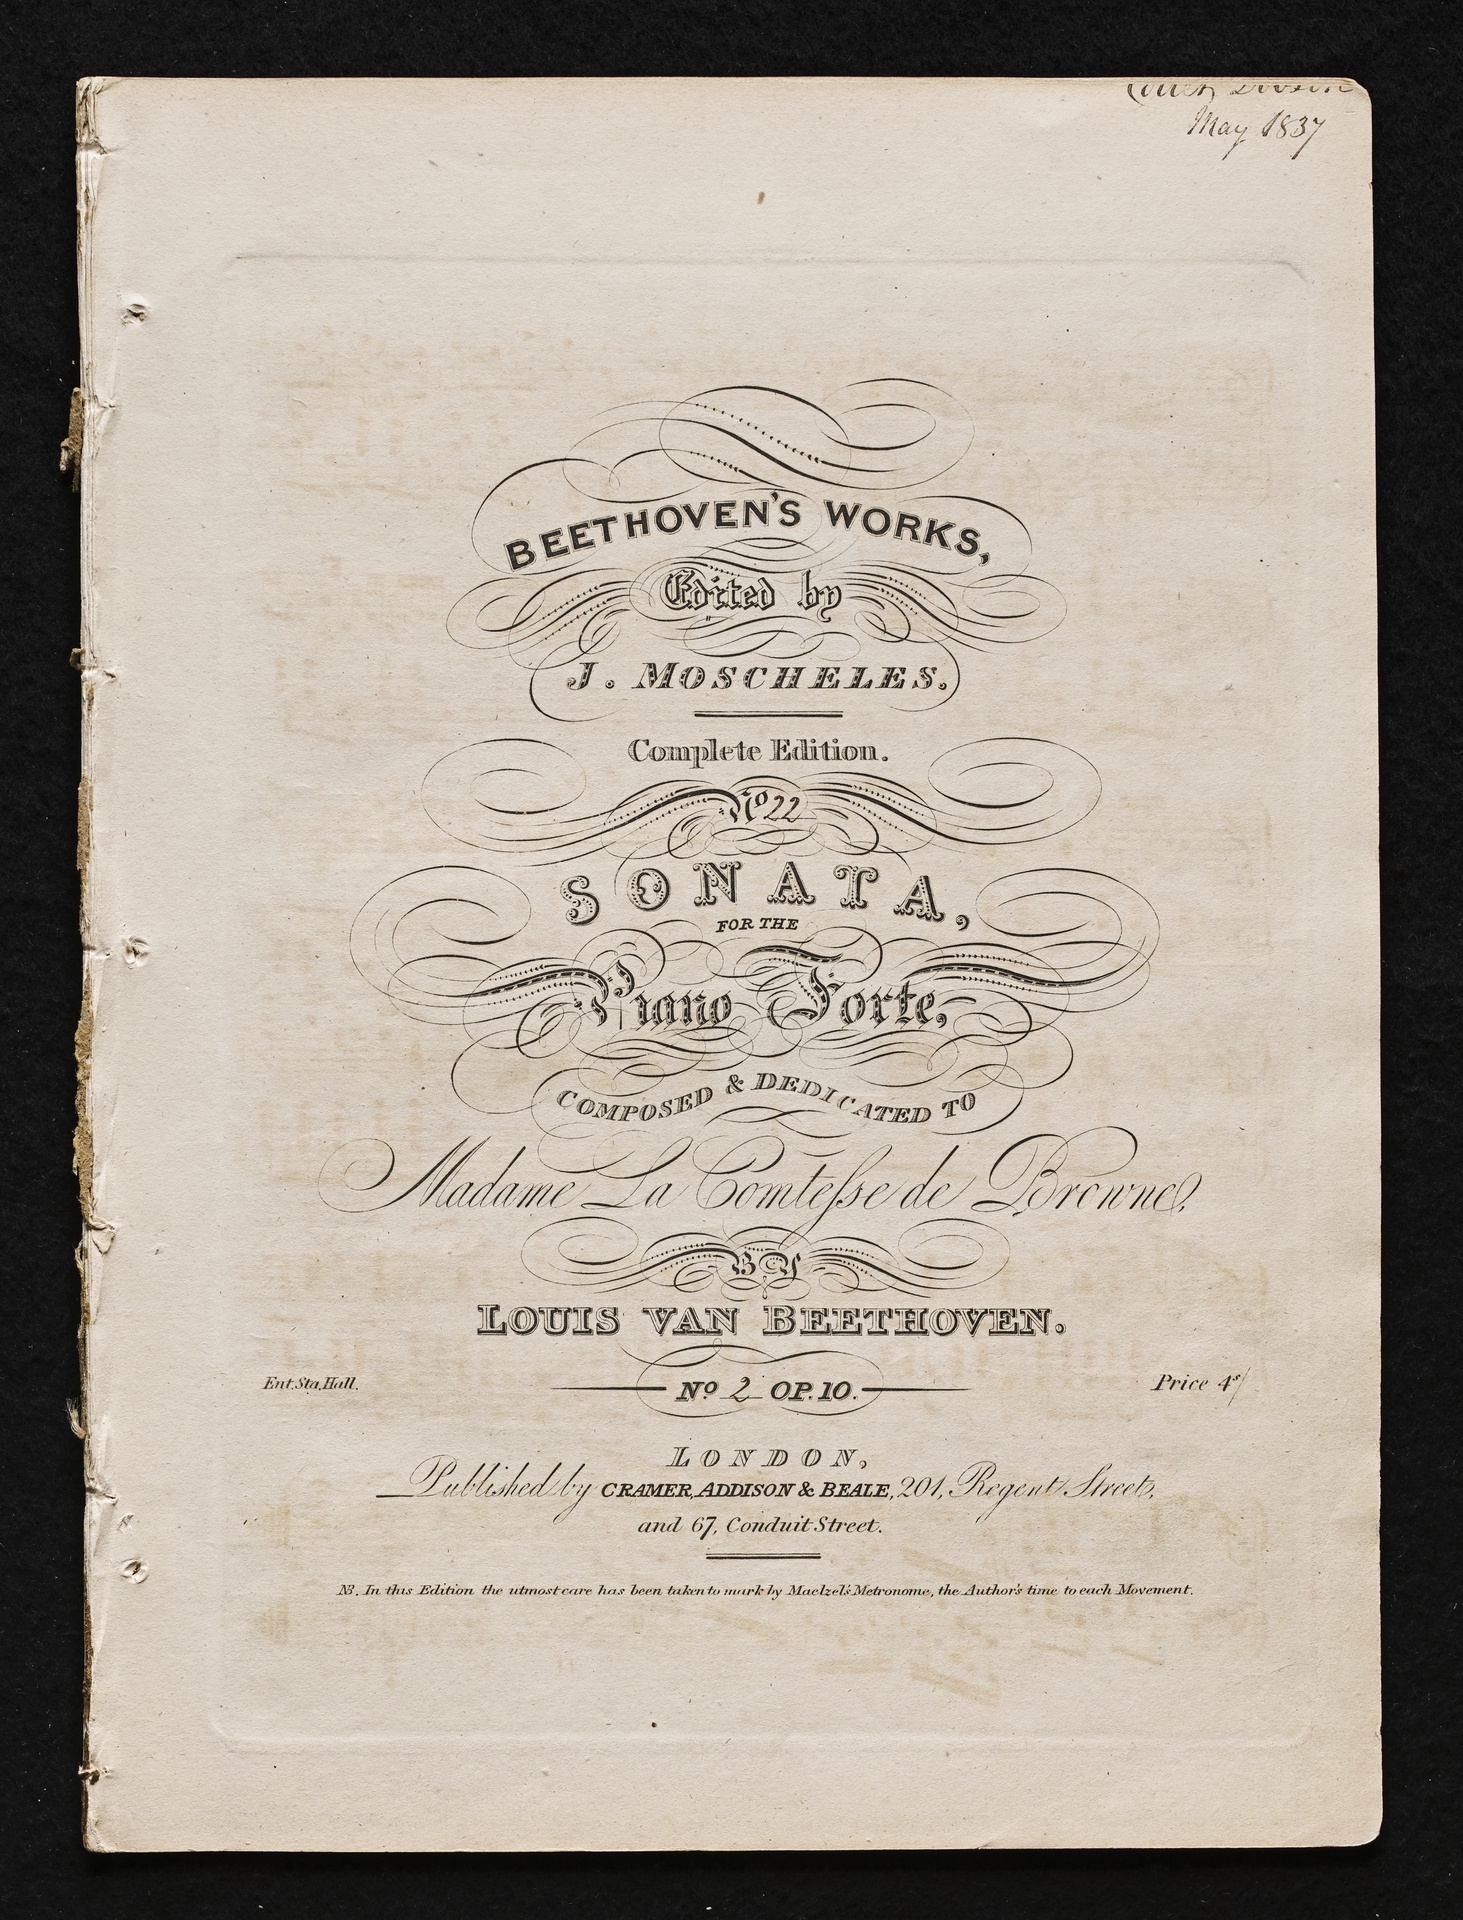 May 1837
BEETHOVEN'S WORKS,
Edited by
J. MOSCHELES.
Complete Edition.
No 22
SONATA,
FOR THE
Piano Forte,
COMPOSED & DEDICATED TO
Madame La Comtesse de Browne,
BY
LOUIS VAN BEETHOVEN.
Ent. Sta. Hall. No 2 OP. 10. Price 4s/
LONDON,
Published by CRAMER, ADDISON & BEALE, 201, Regent Street,
and 67, Conduit Street.
NB. In this Edition the utmost care has been taken to mark by Maelzel's Metronome, the Author's time to each Movement.